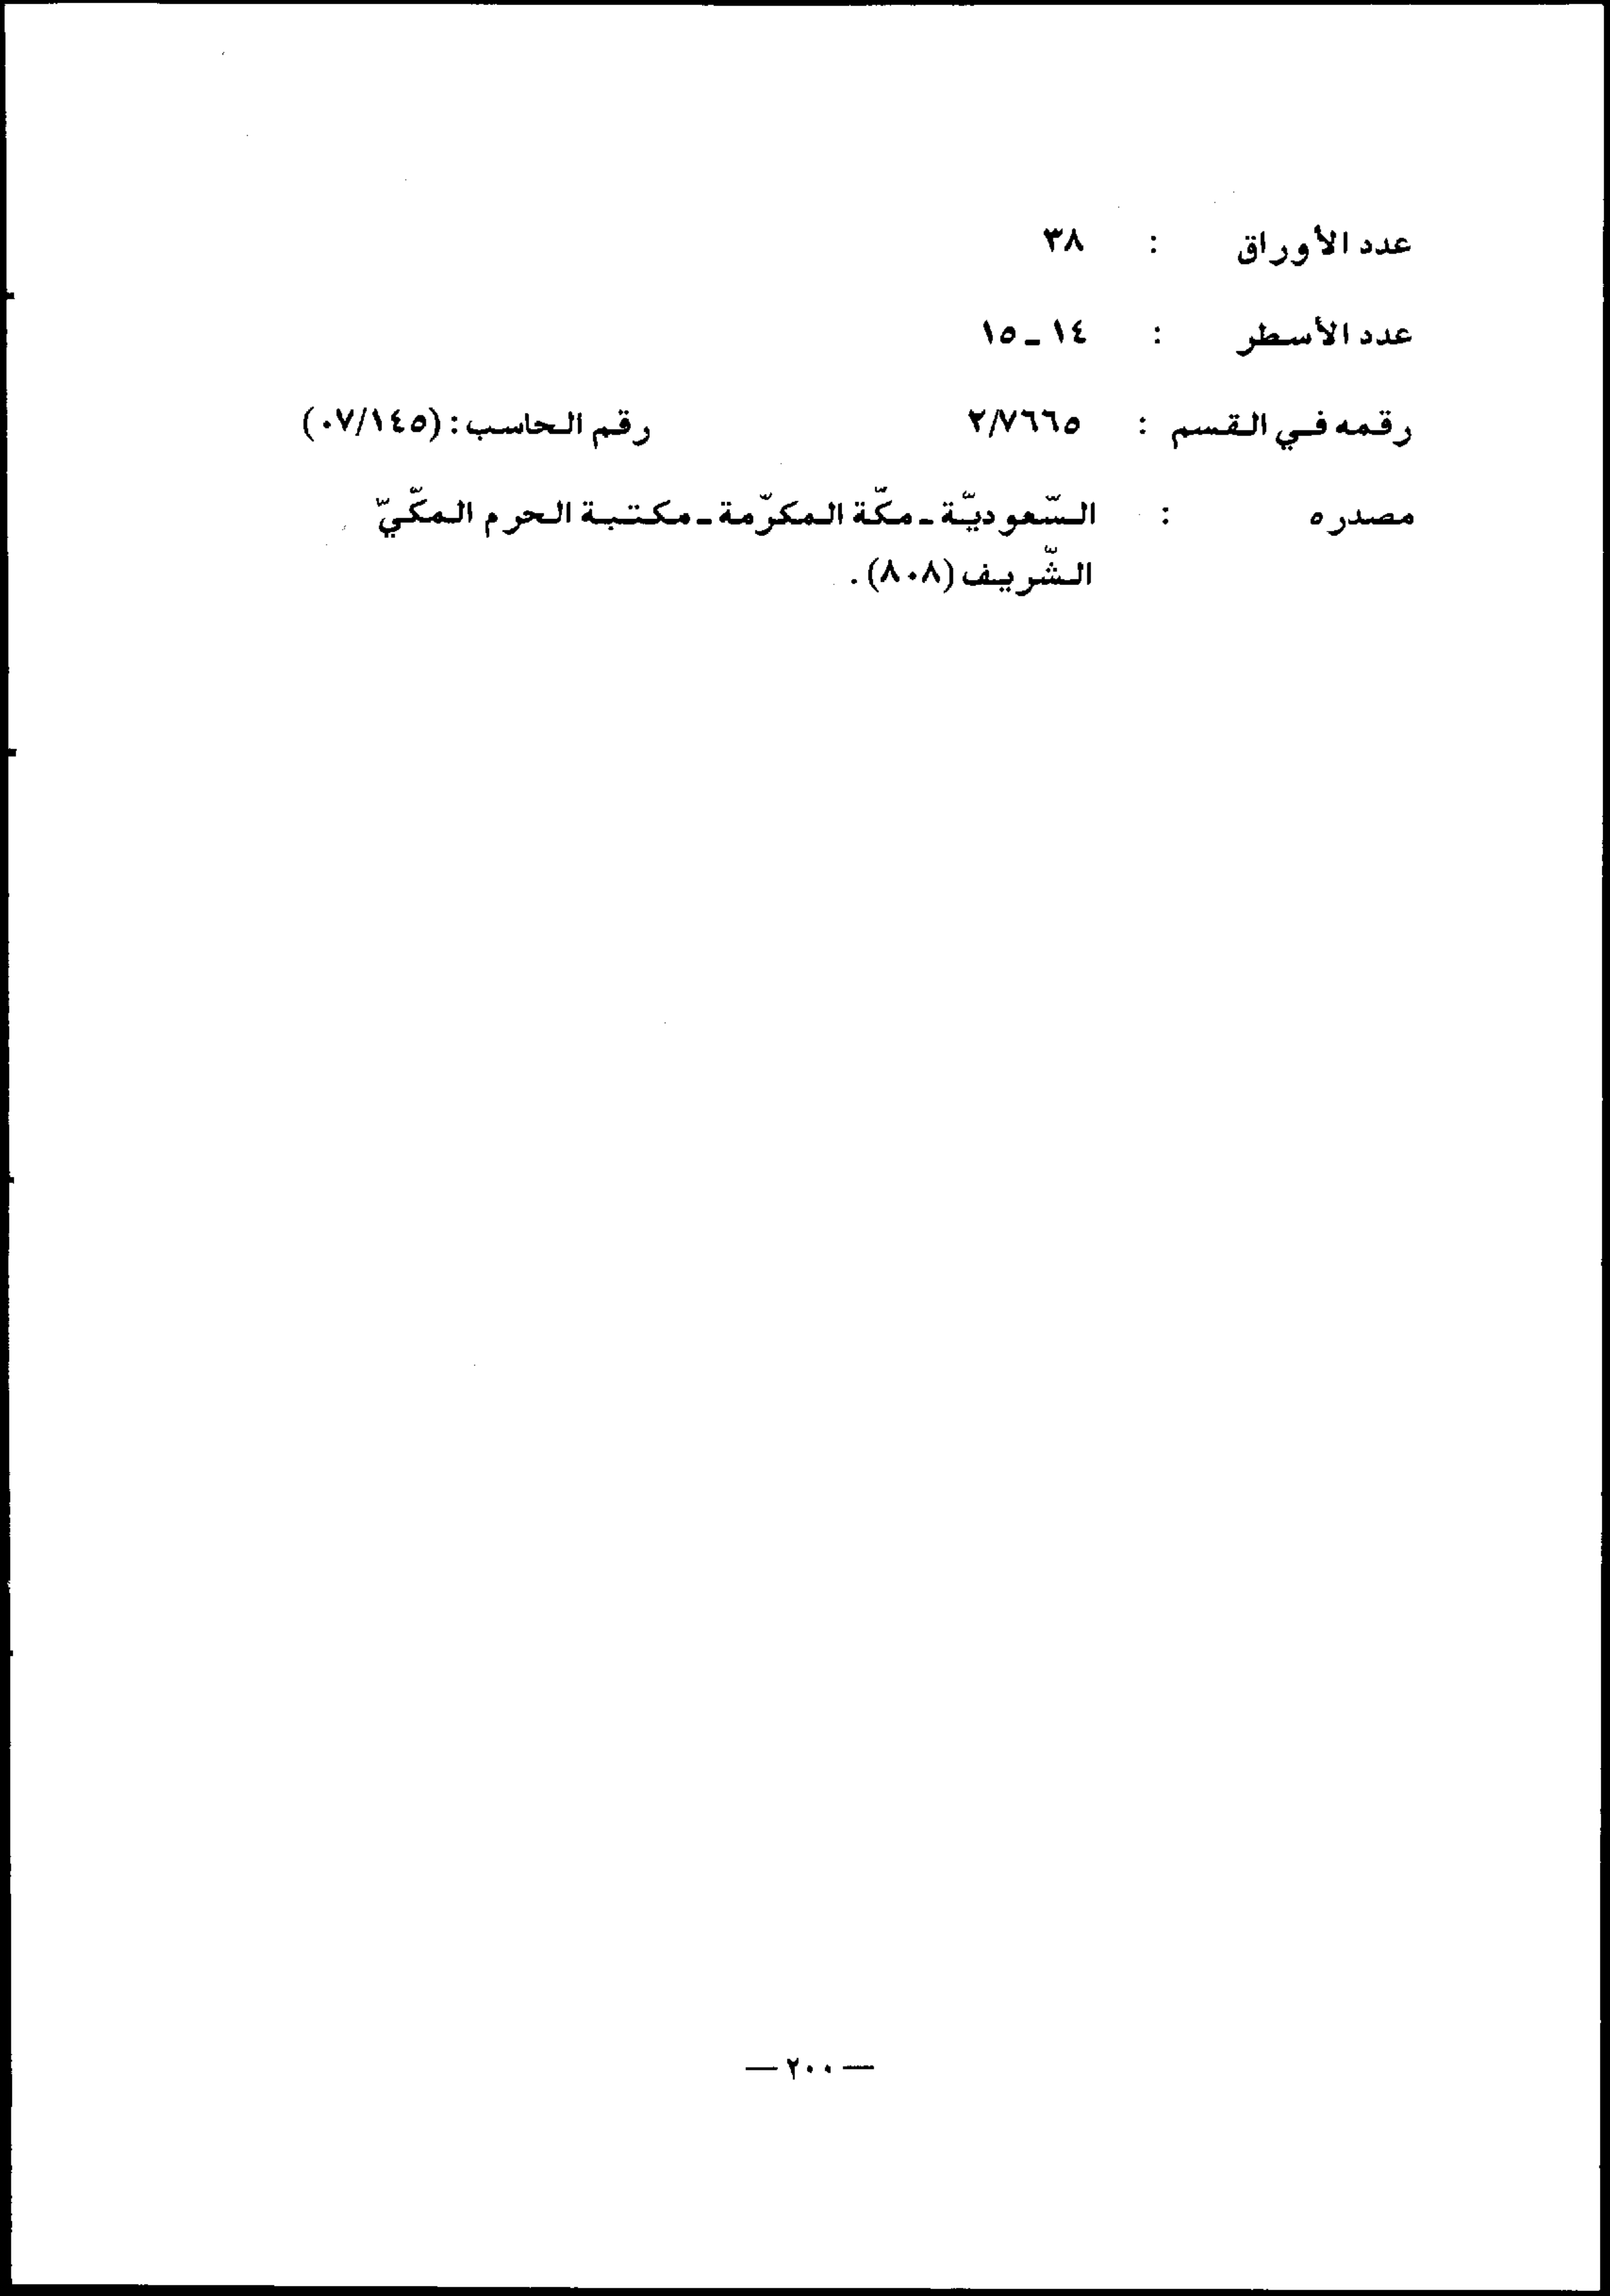 عدد الأوراق : ٣٨
عدد الأسطر : ١٤ ـ ١٥
رقمه في القسم : ٢/٧٦٦٥ رقم الحاسب : (٠٧/١٤٥)
مصدره : السّعوديّة ـ مكّة المكرّمة ـ مكتبة الحرم المكّيّ
الشّريف (٨٠٨) .
— ٢٠٠ —